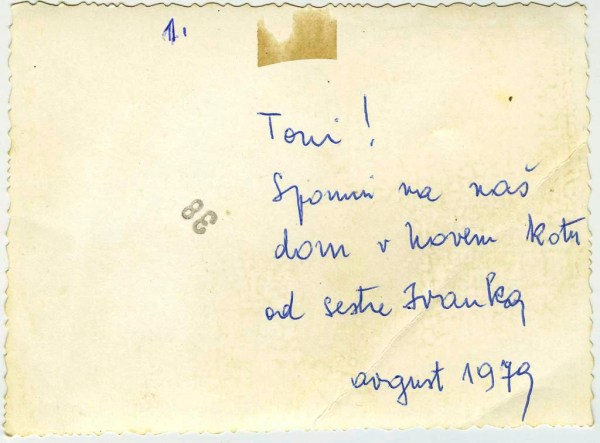 1.
Toni!
Spomin na naš
dom v novem kotu
od sestre Ivanke
38
avgust 1979